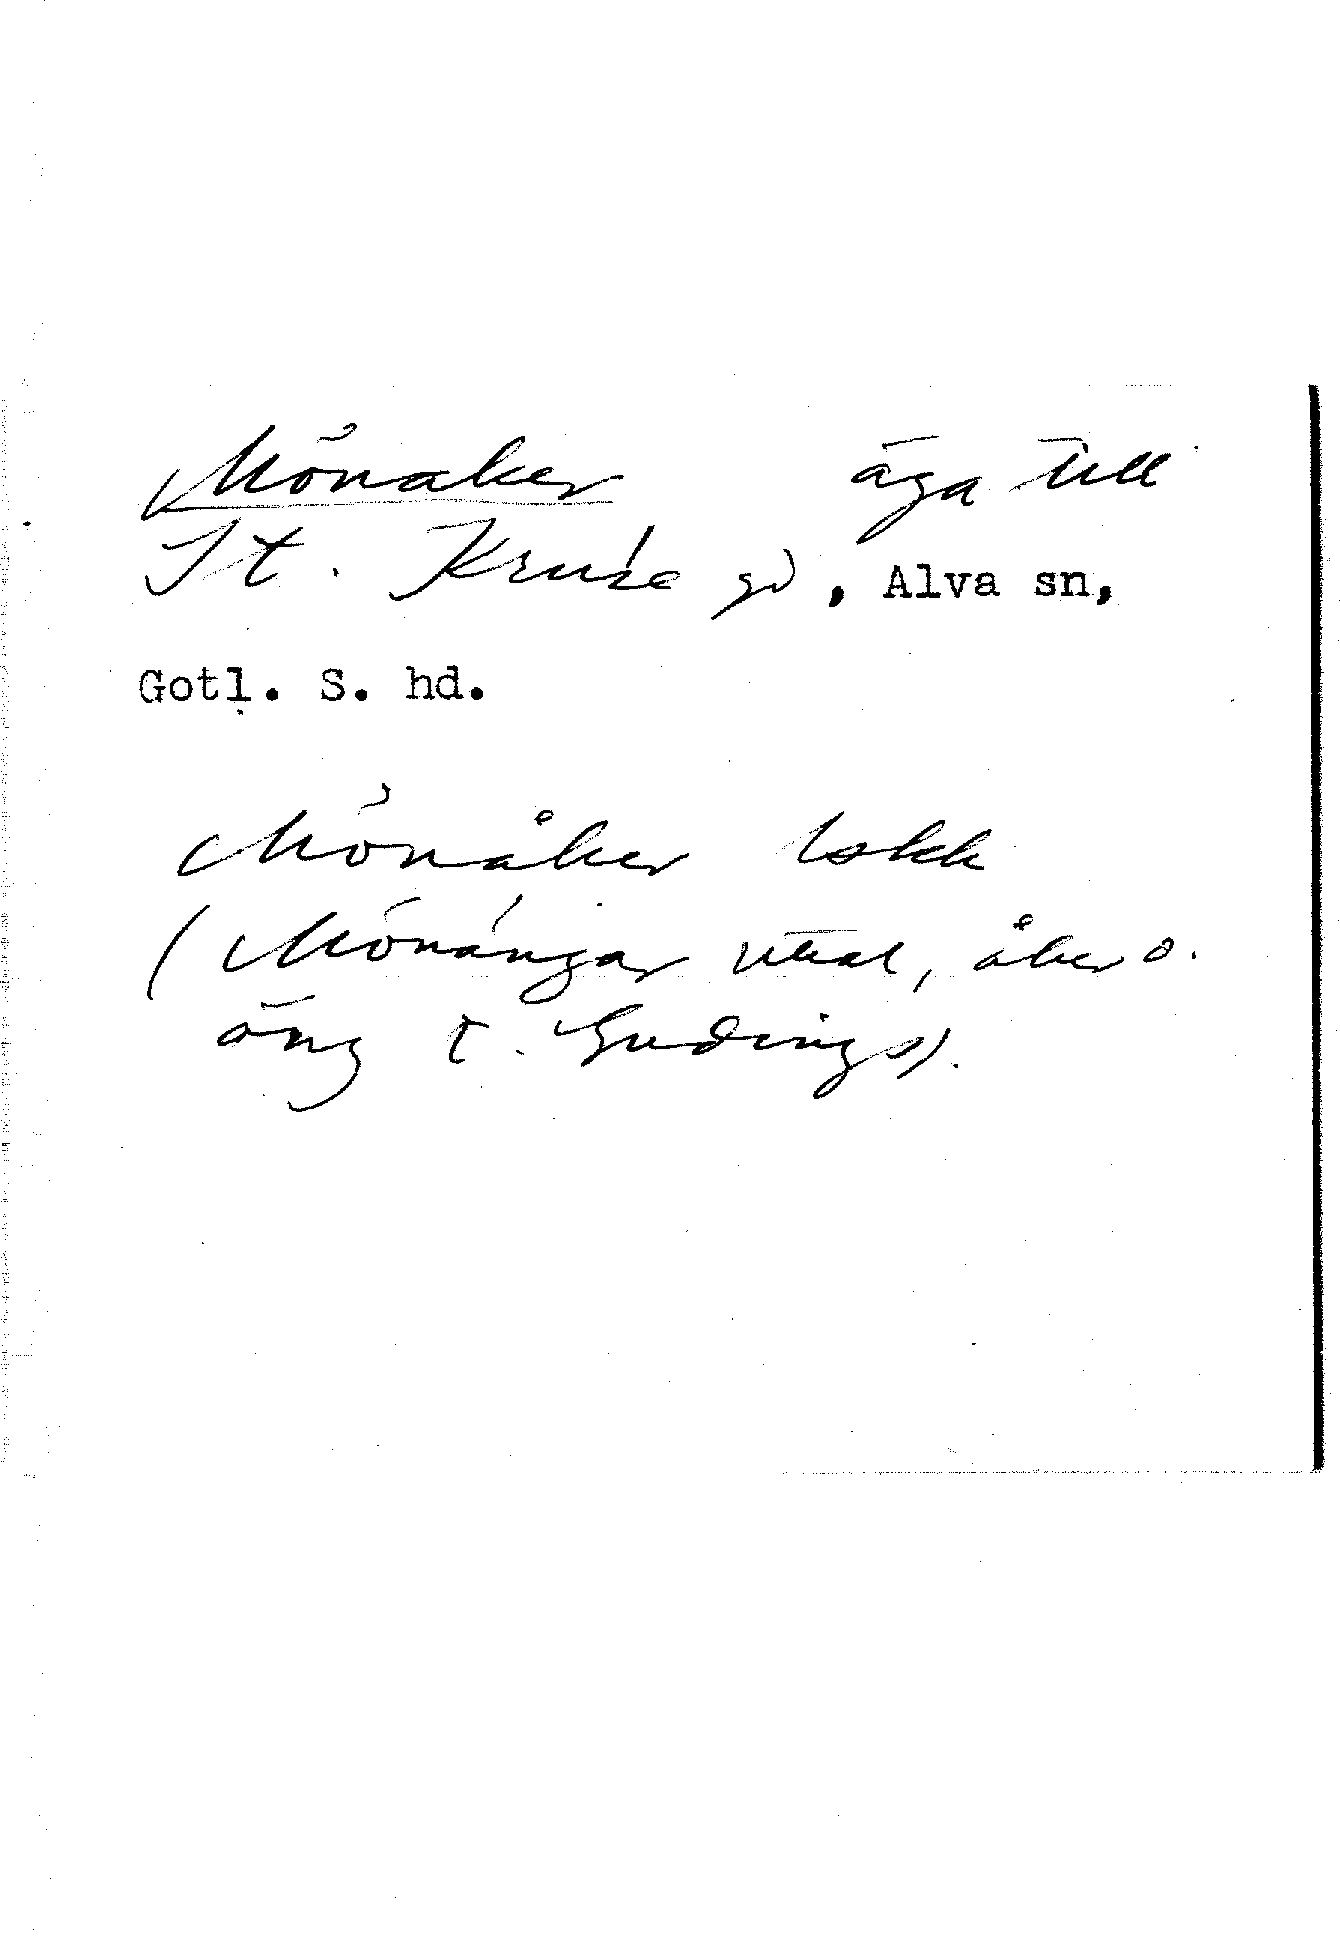 Mönaker äga till
St. Kruse gd, Alva sn,
Gotl. S. hd.
Mönåker Lskk
(Mönängar uttal, åker o.
äng t. Gudings).